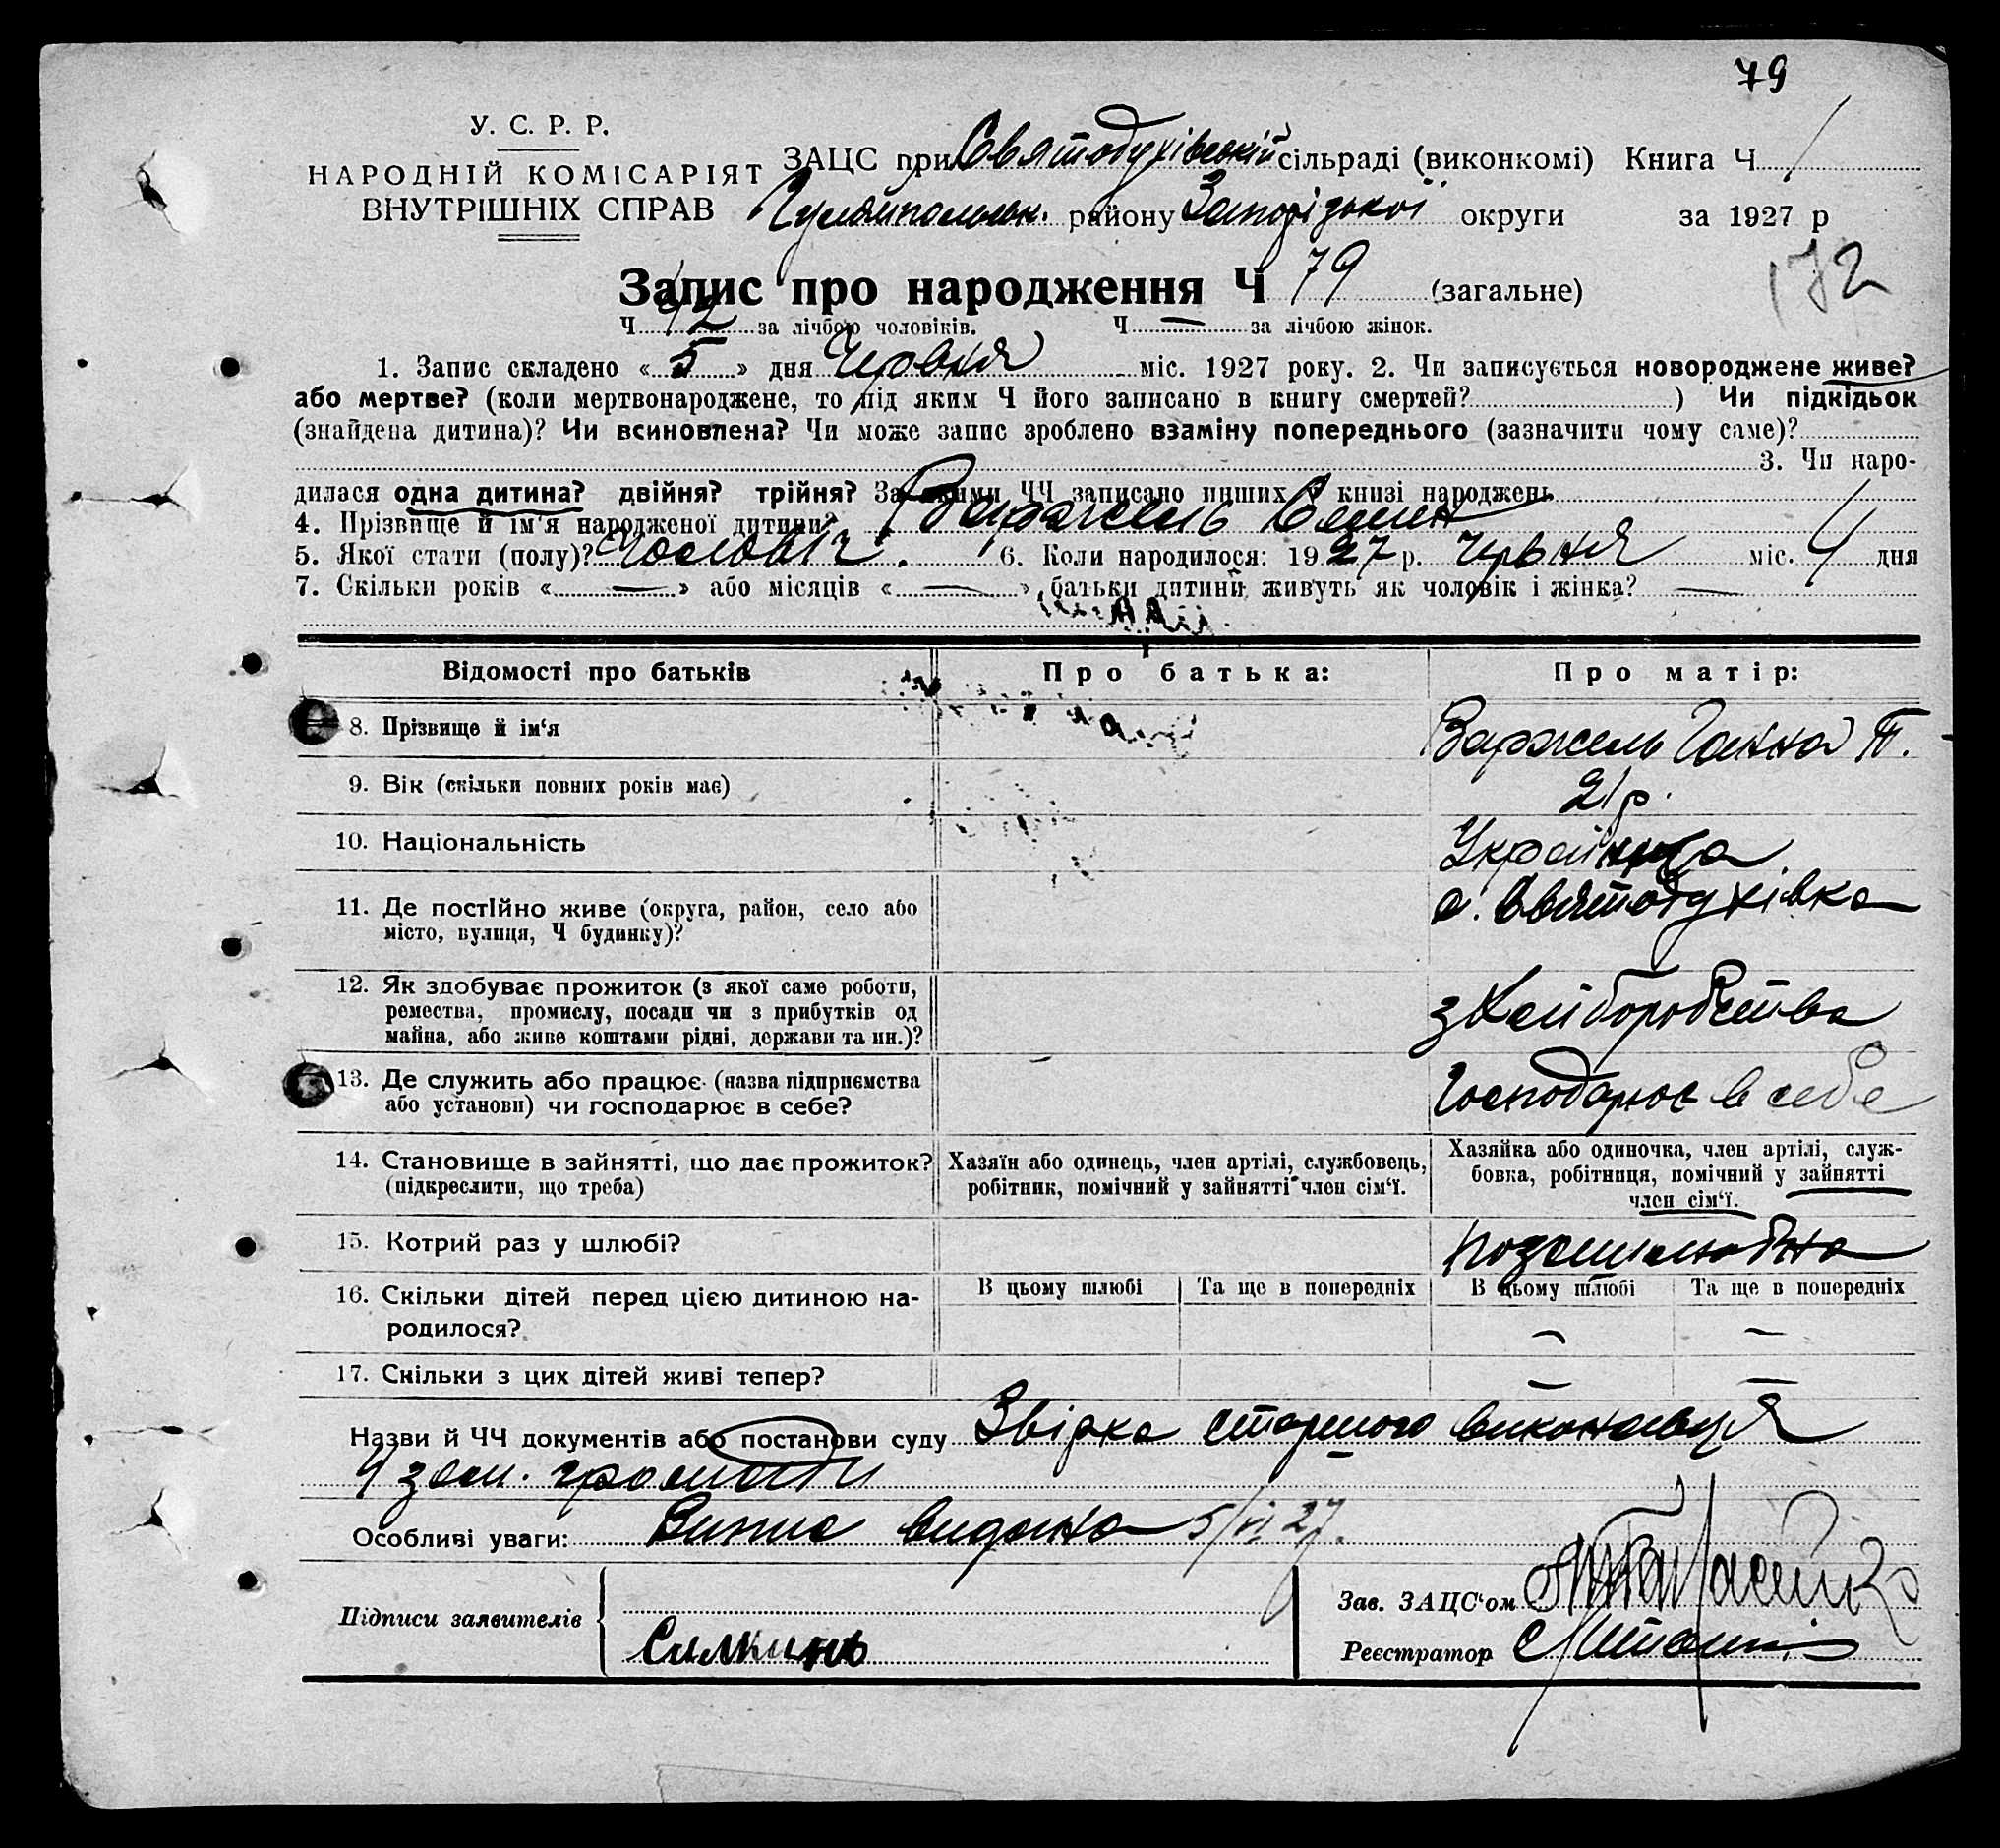 79
У. С. Р. Р.
НАРОДНІЙ КОМІСАРІЯТ
ВНУТРІШНІХ СПРАВ
ЗАЦС при Святодухівській сільраді (виконкомі) Книга Ч 1
Гуляйпольськ. району Запорізької округи за 1927 р
172
Запис про народження Ч 79 (загальне)
Ч 42 за лічбою чоловіків. Ч — за лічбою жінок.
1. Запис складено « 5 » дня Червня міс. 1927 року. 2. Чи записується новороджене живе?
або мертве? (коли мертвонароджене, то під яким Ч його записано в книгу смертей? ) Чи підкідьок
(знайдена дитина)? Чи всиновлена? Чи може запис зроблено взаміну попереднього (зазначити чому саме)?
3. Чи наро-
дилася одна дитина? двійня? трійня? За якими ЧЧ записано инших у книзі народжень
4. Прізвище й ім'я народженої дитини? Варжель
5. Якої стати (полу)? Чоловіч. 6. Коли народилося: 1927 р. Червня міс. 4 дня
7. Скільки років « — » або місяців « — » батьки дитини живуть як чоловік і жінка? —
Відомості про батьків Про батька: Про матір:
8. Прізвище й ім‘я Варжель Ганна Т.
9. Вік (скільки повних років має) 21 р.
10. Національність Українка
11. Де постійно живе (округа, район, село або
місто, вулиця, Ч будинку)? с. Святодухівка
12. Як здобуває прожиток (з якої саме роботи,
ремества, промислу, посади чи з прибутків од
майна, або живе коштами рідні, держави та ин.)? з Хлиборобства
13. Де служить або працює (назва підприємства
або установи) чи господарює в себе? Господарює в себе
14. Становище в зайнятті, що дає прожиток?
(підкреслити, що треба)
Хазяїн або одинець, член артілі, службовець,
робітник, помічний у зайнятті член сім‘ї.
Хазяйка або одиночка, член артілі, служ-
бовка, робітниця, помічний у зайнятті
член сім‘ї.
15. Котрий раз у шлюбі? позашлюбна
16. Скільки дітей перед цією дитиною на-
родилося?
В цьому шлюбі Та ще в попередніх В цьому шлюбі Та ще в попередніх
— —
17. Скільки з цих дітей живі тепер? — —
Назви й ЧЧ документів або постанови суду Звірка старшого виконавця
Ч зем. громади
Особливі уваги: Випис видано 5/VI 27.
Підписи заявителів
Зав. ЗАЦС‘ом
Реєстратор